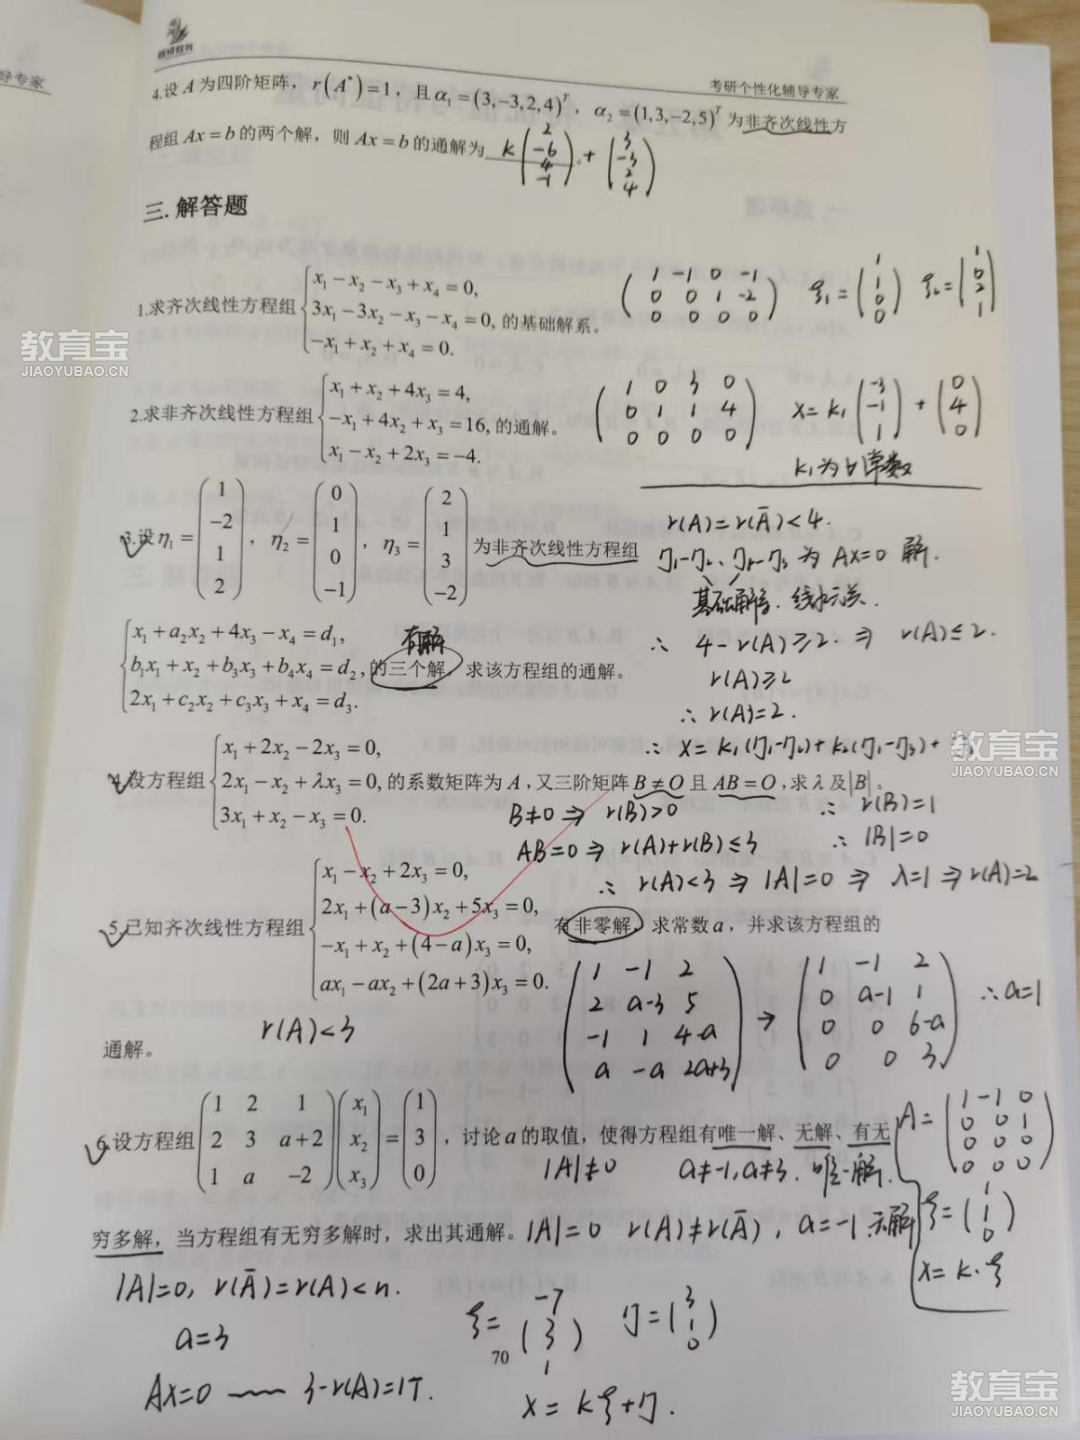 跨考教育
考研个性化辅导专家
导专家
4.设 A 为四阶矩阵，r(A*)=1，且 α₁=(3,−3,2,4)ᵀ，α₂=(1,3,−2,5)ᵀ 为非齐次线性方
程组 Ax=b 的两个解，则 Ax=b 的通解为 k(2 −6 4 −1)+(3 −3 2 4)
三.解答题
1.求齐次线性方程组 { x₁−x₂−x₃+x₄=0, 3x₁−3x₂−x₃−x₄=0, −x₁+x₂+x₄=0. 的基础解系。
(1 −1 0 −1
0 0 1 −2
0 0 0 0) ξ₁=(1 1 0 0) ξ₂=(1 0 2 1)
2.求非齐次线性方程组 { x₁+x₂+4x₃=4, −x₁+4x₂+x₃=16, x₁−x₂+2x₃=−4. 的通解。
(1 0 3 0
0 1 1 4
0 0 0 0) x=k₁(−3 −1 1)+(0 4 0)
k₁为常数
3.设 η₁=(1 −2 1 2)，η₂=(0 1 0 −1)，η₃=(2 1 3 −2) 为非齐次线性方程组
{ x₁+a₂x₂+4x₃−x₄=d₁, b₁x₁+x₂+b₃x₃+b₄x₄=d₂, 2x₁+c₂x₂+c₃x₃+x₄=d₃. 的三个解，求该方程组的通解。
有解
r(A)=r(Ā)<4.
η₁−η₂、η₁−η₃ 为 Ax=0 解.
基础解系. 线性无关.
∴ 4−r(A)≥2. ⇒ r(A)≤2.
r(A)≥2
∴ r(A)=2.
∴ x=k₁(η₁−η₂)+k₂(η₁−η₃)+
4.设方程组 { x₁+2x₂−2x₃=0, 2x₁−x₂+λx₃=0, 3x₁+x₂−x₃=0. 的系数矩阵为 A，又三阶矩阵 B≠O 且 AB=O，求 λ 及|B|。
B≠0 ⇒ r(B)>0 ∴ r(B)=1
AB=0 ⇒ r(A)+r(B)≤3 ∴ |B|=0
∴ r(A)<3 ⇒ |A|=0 ⇒ λ=1 ⇒ r(A)=2
5.已知齐次线性方程组 { x₁−x₂+2x₃=0, 2x₁+(a−3)x₂+5x₃=0, −x₁+x₂+(4−a)x₃=0, ax₁−ax₂+(2a+3)x₃=0. 有非零解，求常数 a，并求该方程组的
通解。
r(A)<3
(1 −1 2
2 a−3 5
−1 1 4−a
a −a 2a+3) → (1 −1 2
0 a−1 1
0 0 6−a
0 0 3) ∴a=1
A=(1 −1 0
0 0 1
0 0 0
0 0 0)
ξ=(1 1 0)
x=k·ξ
6.设方程组 (1 2 1 2 3 a+2 1 a −2)(x₁ x₂ x₃)=(1 3 0)，讨论 a 的取值，使得方程组有唯一解、无解、有无
|A|≠0 a≠−1,a≠3. 唯一解.
穷多解，当方程组有无穷多解时，求出其通解。 |A|=0 r(A)≠r(Ā)，a=−1 无解
|A|=0, r(Ā)=r(A)<n.
a=3
Ax=0 3−r(A)=1个.
ξ=(−7 3 1) η=(3 1 0)
x=kξ+η.
70
教育宝
JIAOYUBAO.CN
教育宝
JIAOYUBAO.CN
教育宝
JIAOYUBAO.CN